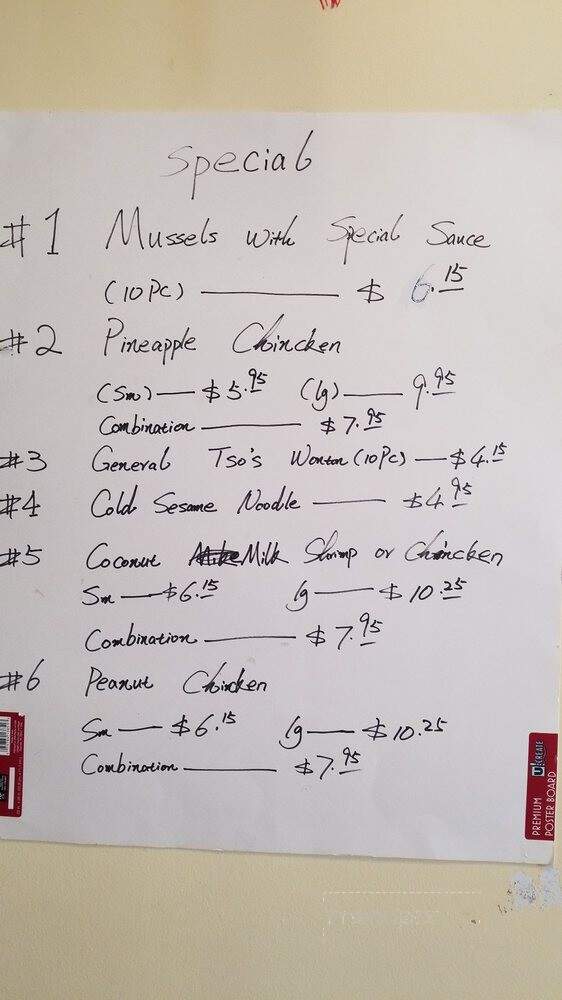 Special
#1 Mussels with Special Sauce
(10 PC) $ 6.15
#2 Pineapple Chincken
(Sm) — $5.95 (lg) — 9.95
Combination — $7.95
#3 General Tso's Wonton (10 PC) — $4.15
#4 Cold Sesame Noodle — $4.95
#5 Coconut Milk Shrimp or Chincken
Sm — $6.15 lg — $10.25
Combination — $7.95
#6 Peanut Chicken
Sm — $6.15 lg — $10.25
Combination — $7.95
U CREATE
PREMIUM
POSTER BOARD